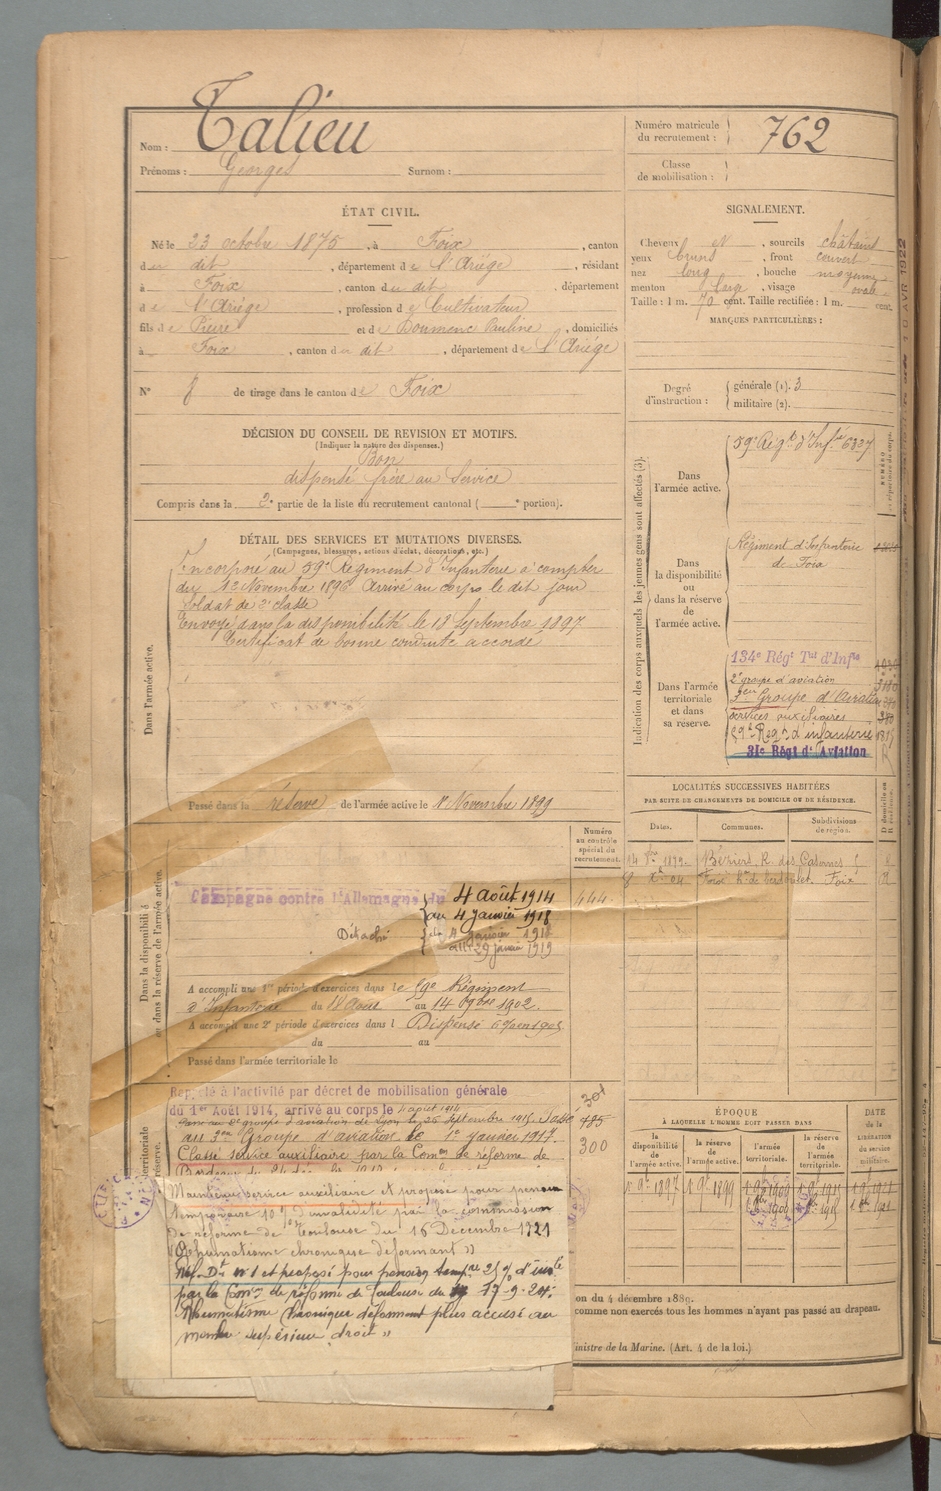 Nom : Talieu
Prénoms : Georges Surnom :
Numéro matricule du recrutement : 762
Classe de mobilisation :
ÉTAT CIVIL.
Né le 23 octobre 1875, à Foix, canton
du dit, département de l'Ariège, résidant
à Foix, canton du dit, département
de l'Ariège, profession de Cultivateur
fils de Pierre et de Boumenc Pauline, domiciliés
à Foix, canton du dit, département de l'Ariège
N° 8 de tirage dans le canton de Foix
DÉCISION DU CONSEIL DE REVISION ET MOTIFS.
(Indiquer la nature des dispenses.)
Bon
dispensé frère au Service
Compris dans la 2e partie de la liste du recrutement cantonal ( e portion).
DÉTAIL DES SERVICES ET MUTATIONS DIVERSES.
(Campagnes, blessures, actions d'éclat, décorations, etc.)
Dans l'armée active.
Incorporé au 59e Régiment d'Infanterie à compter
du 12 Novembre 1896. Arrivé au corps le dit jour
Soldat de 2e classe
Envoyé dans la disponibilité le 18 Septembre 1897
Certificat de bonne conduite accordé
Passé dans la réserve de l'armée active le 1er Novembre 1899
Numéro au contrôle spécial du recrutement.
Dans la disponibilité ou dans la réserve de l'armée active.
Campagne contre l'Allemagne du 4 août 1914
au 4 janvier 1918
Détaché du 4 janvier 1918
au 29 janvier 1919
444
A accompli une 1re période d'exercices dans le 59e Régiment
d'Infanterie du 18 Août au 14 7bre 1902.
A accompli une 2e période d'exercices dans l Dispensé
du au
Passé dans l'armée territoriale le
Rappelé à l'activité par décret de mobilisation générale
du 1er Août 1914, arrivé au corps le 4 août 1914
Passé au 2e groupe d'aviation de Lyon le 25 Septembre 1915. Passé
au 3me Groupe d'aviation le 1er janvier 1917.
Classé service auxiliaire par la Comon de réforme de
300
Maintenu service auxiliaire et proposé pour pension
temporaire 10 % d'invalidité par la commission
de réforme de Toulouse du 16 Décembre 1921
"Rhumatisme chronique déformant"
Réf. Dt n° 1 et proposé pour pension tempre 25 % d'inv.té
par la Comon de réforme de Toulouse du 17-9-24.
Rhumatisme chronique déformant plus accusé au
membre supérieur droit"
SIGNALEMENT.
Cheveux et, sourcils châtains
yeux bruns, front couvert
nez long, bouche moyenne
menton large, visage ovale
Taille : 1 m. 70 cent. Taille rectifiée : 1 m. cent.
MARQUES PARTICULIÈRES :
Degré d'instruction : générale (1). 3
militaire (2).
Indication des corps auxquels les jeunes gens sont affectés (3).
Dans l'armée active.
59e Régt d'Infie 6327
Dans la disponibilité ou dans la réserve de l'armée active.
Régiment d'Infanterie
de Foix
Dans l'armée territoriale et dans sa réserve.
134e Régt Tal d'Infie
2e groupe d'aviation
3eme Groupe d'Aviation
services auxiliaires
59e Regt d'infanterie
31e Régt d'Aviation
LOCALITÉS SUCCESSIVES HABITÉES
PAR SUITE DE CHANGEMENTS DE DOMICILE OU DE RÉSIDENCE.
Dates. Communes. Subdivisions de région.
Béziers, R. des Casernes
Foix Foix R
ÉPOQUE
À LAQUELLE L'HOMME DOIT PASSER DANS
la disponibilité de l'armée active. la réserve de l'armée active. l'armée territoriale. la réserve de l'armée territoriale.
DATE de la LIBÉRATION du service militaire.
1 9bre 1897 1 9bre 1899
on du 4 décembre 1889.
comme non exercés tous les hommes n'ayant pas passé au drapeau.
inistre de la Marine. (Art. 4 de la loi.)